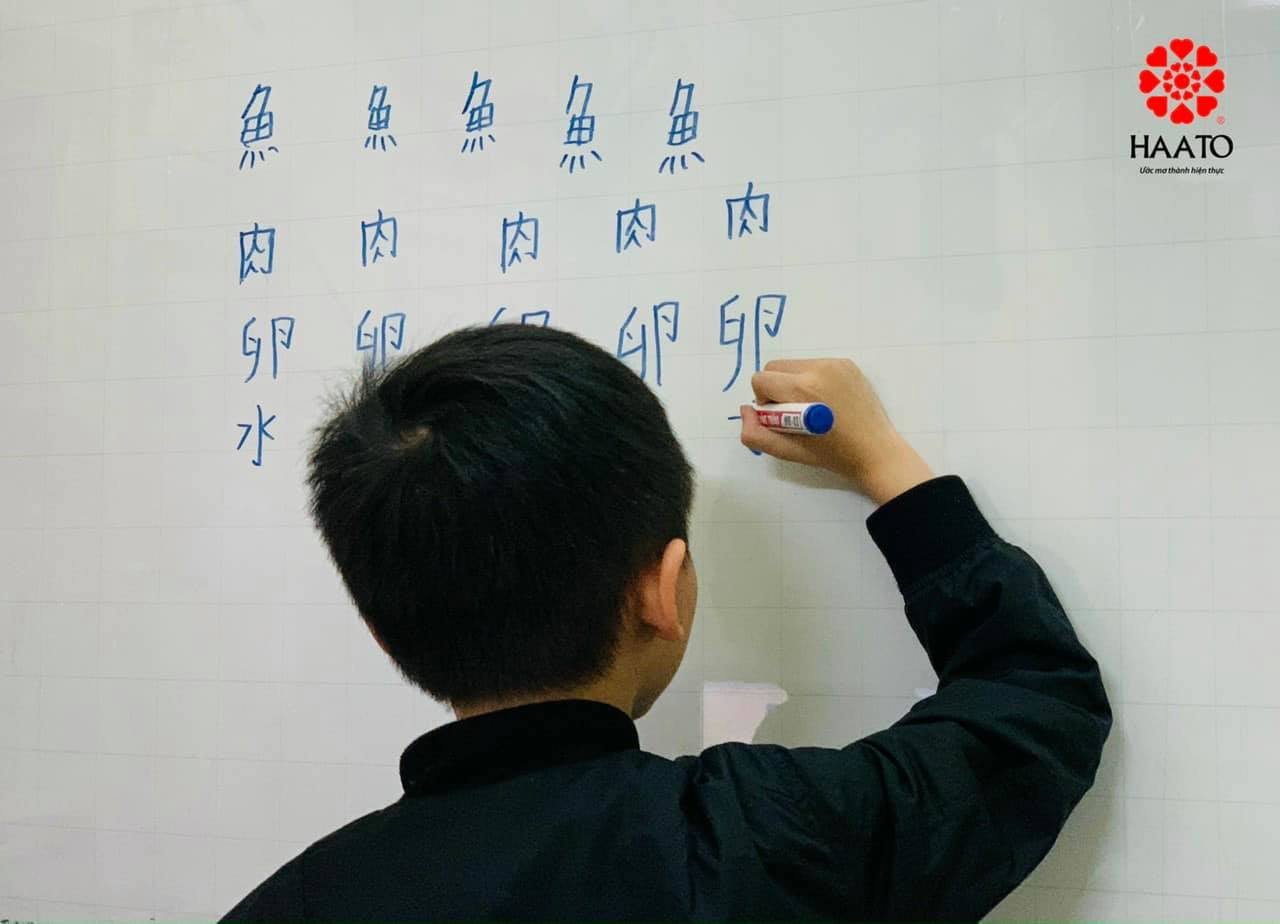 魚 魚 魚 魚 魚
肉 肉 肉 肉 肉
卵 卵 卵 卵 卵
水
HAATO
Ước mơ thành hiện thực